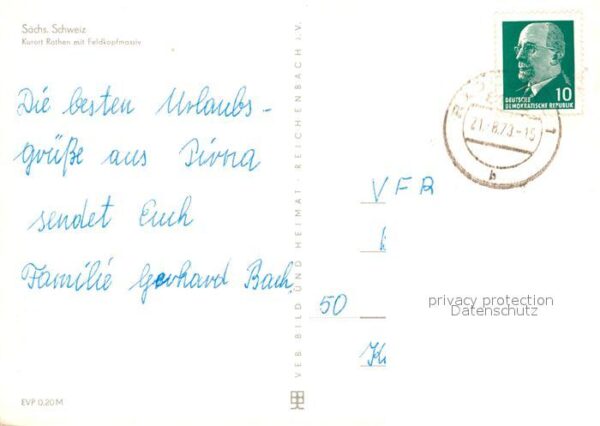 Sächs. Schweiz
Kurort Rathen mit Feldkopfmassiv
Die besten Urlaubs-
grüße aus Pirna
sendet Euch
Familie Gerhard Bach
EVP 0,20 M
VEB BILD UND HEIMAT · REICHENBACH i.V.
10
DEUTSCHE
DEMOKRATISCHE REPUBLIK
1
b
VFR
50
privacy protection
Datenschutz